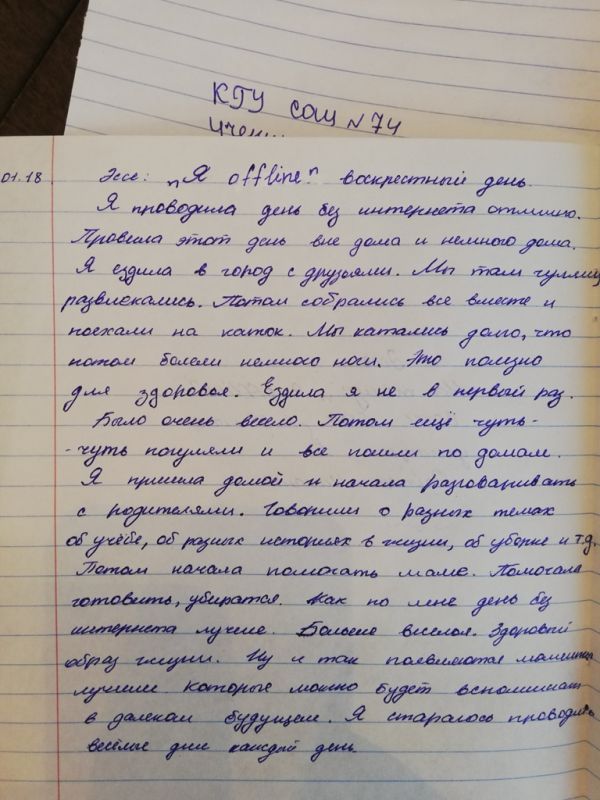 КГУ сош N 74
01.18
Эссе: "Я offline" воскрестный день.
Я проводила день без интернета отлично.
Провела этот день вне дома и немного дома.
Я ездила в город с друзьями. Мы там
развлекались. Потом собрались все вместе и
поехали на каток. Мы катались долго, что
потом болели немного ноги. Это полезно
для здоровья. Ездила я не в первый раз.
Было очень весело. Потом ещё чуть-
-чуть погуляли и все пошли по домам.
Я пришла домой и начала разговаривать
с родителями. Говорили о разных темах
об учёбе, об разных историях в жизни, об уборке и т.д.
Потом начала помогать маме. Помогала
готовить, убиратся. Как по мне день без
интернета лучше. Больше веселья. Здоровый
образ жизни. Ну и так появляются
лучшие которые можно будет вспоминать
в далеком будущем. Я стараюсь проводить
весёлые дни каждый день